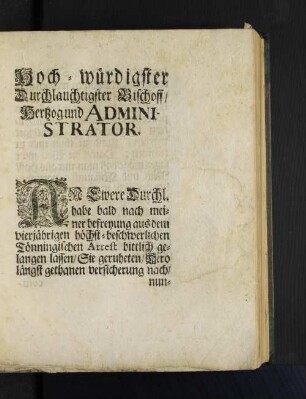 Hoch-würdigster
Durchlauchtigster Bischoff/
Hertzog und ADMINI-
STRATOR.
AN Ewere Durchl.
habe bald nach mei-
ner befreyung aus dem
vierjährigen höchst-beschwerlichen
Tönningischen Arrest bittlich ge-
langen lassen/ Sie geruheten/ Dero
längst gethanen versicherung nach/
nun-